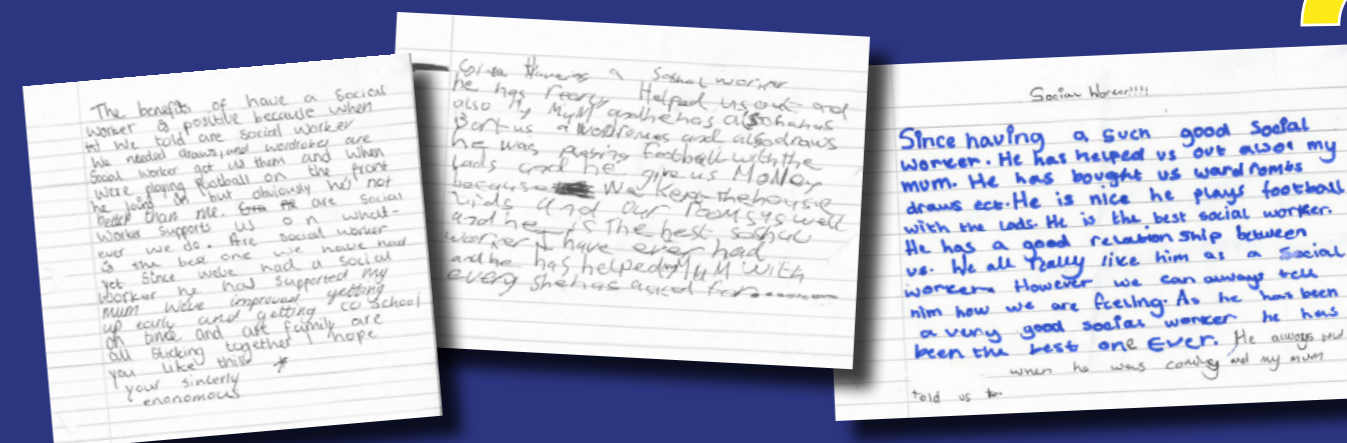 The benefits of have a social
worker is positive because when
we told are social worker
we needed draws, and wordrobes are
Social worker got us them and when
were playing football on the front
he joins in but obviously he's not
better than me. are social
worker supports us on what-
ever we do. Are social worker
is the best one we have had
yet Since weve had a social
worker he had supported my
mum weve improved getting
up early and getting to School
on time and are family are
all sticking together I hope
you like this
your sincerly
enonomous
Since Haveing a Soshul worker
he has reary Helped us out and
also My MuM and he has
Bort us a wordromes and also draws
he was playing football with the
lads and he give us MoNey
because We kept the house
and our rooms as well
and he is the best soshul
worker I have ever had
and he has helped MuM with
every she has asked for
Social Worcer!!!!
Since having a such good Social
worcer. He has helped us out alsot my
mum. He has bought us wardrombs
draws ect. He is nice he plays football
with the lads. He is the best social worker.
He has a good relation ship between
us. We all really like him as a Social
worcer. However we can always tell
him how we are feeling. As he has been
a very good social worcer he has
been the best one Ever. He always
when he was coming and my mum
told us to